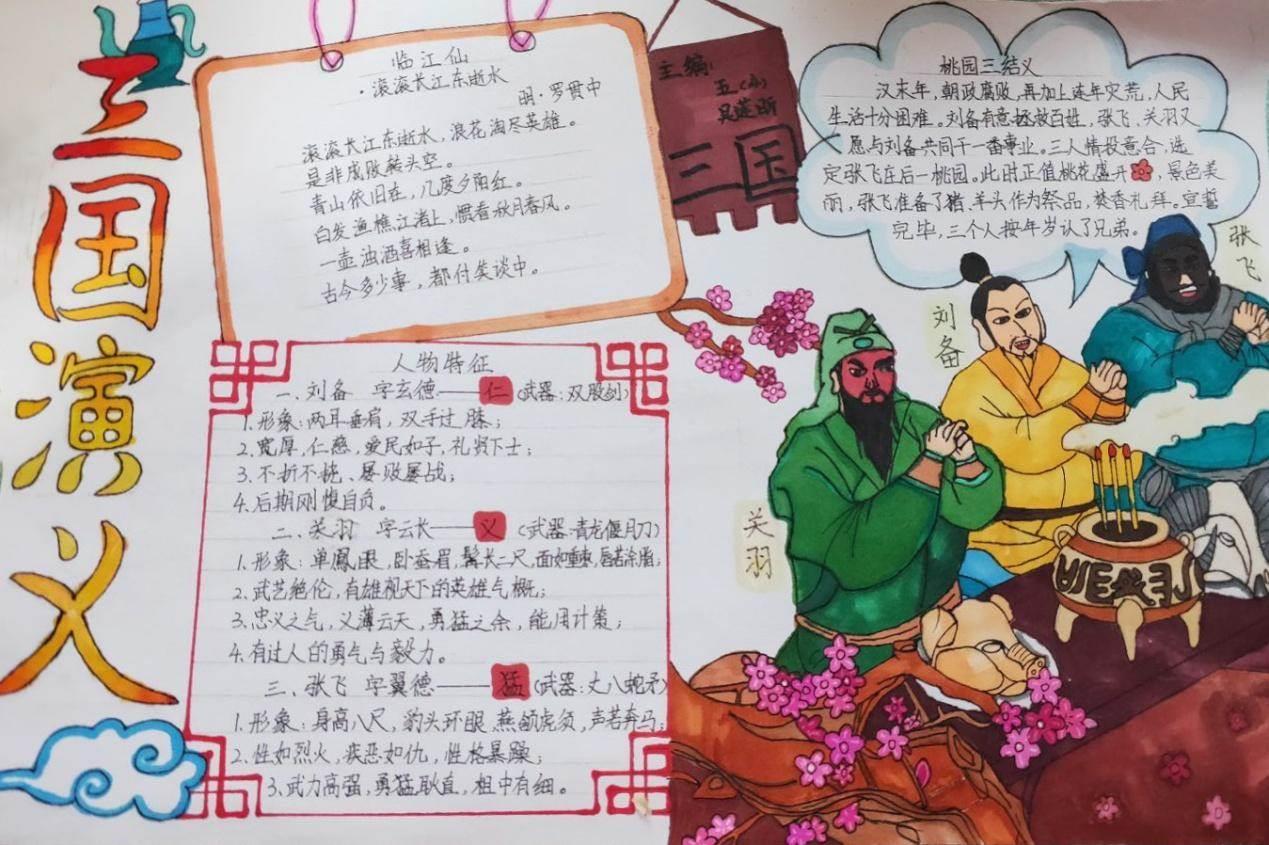 三国演义
临江仙
·滚滚长江东逝水
明·罗贯中
滚滚长江东逝水，浪花淘尽英雄。
是非成败转头空。
青山依旧在，几度夕阳红。
白发渔樵江渚上，惯看秋月春风。
一壶浊酒喜相逢。
古今多少事，都付笑谈中。
主编：
五（小）
吴莲昕
三国
桃园三结义
汉末年，朝政腐败，再加上连年灾荒，人民
生活十分困难。刘备有意拯救百姓，张飞、关羽又
愿与刘备共同干一番事业。三人情投意合，选
定张飞庄后一桃园。此时正值桃花盛开，景色美
丽，张飞准备了猪、羊头作为祭品，焚香礼拜。宣誓
完毕，三个人按年岁认了兄弟。
人物特征
一、刘备 字玄德——仁（武器：双股剑）
1.形象：两耳垂肩，双手过膝；
2.宽厚，仁慈，爱民如子，礼贤下士；
3.不折不挠、屡败屡战；
4.后期刚愎自负。
二、关羽 字云长——义（武器：青龙偃月刀）
1.形象：单鳳眼，卧蚕眉，髯长二尺，面如重枣，唇若涂脂；
2.武艺绝伦，有雄视天下的英雄气概；
3.忠义之气，义薄云天，勇猛之余，能用计策；
4.有过人的勇气与毅力。
三、张飞 字翼德——猛（武器：丈八蛇矛）
1.形象：身高八尺，豹头环眼，燕颌虎须，声若奔马；
2.性如烈火，疾恶如仇，性格暴躁；
3.武力高强，勇猛耿直，粗中有细。
张飞
刘备
关羽